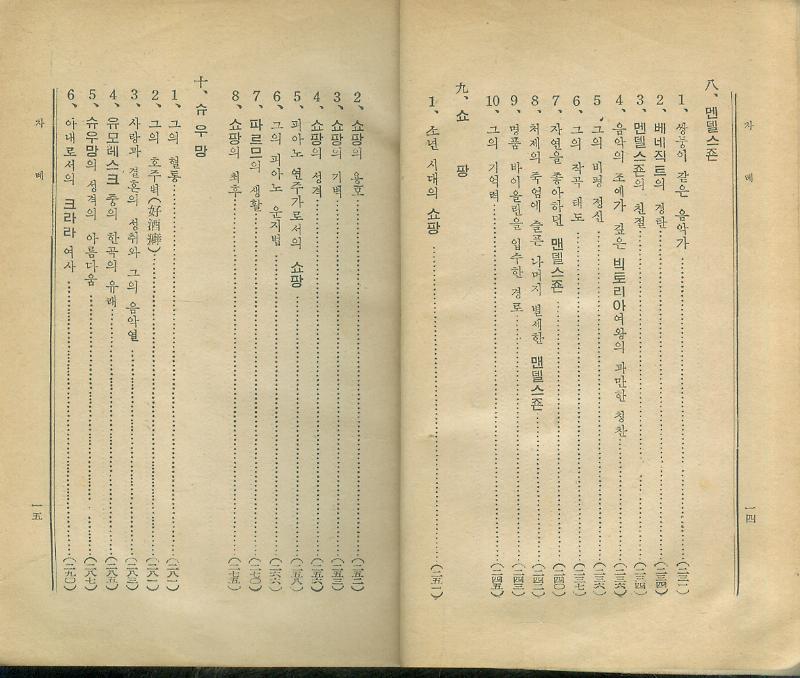 차 례
一四
八、멘델스죤
1、쌍둥이 같은 음악가 (二三一)
2、베네직트의 경탄 (二三四)
3、멘델스죤의 친절 (二三四)
4、음악의 조예가 깊은 빅토리아여왕의 과만한 칭찬 (二三六)
5、그의 비평 정신 (二三六)
6、그의 작곡 태도 (二三七)
7、자연을 좋아하던 멘델스죤 (二四〇)
8、처제의 죽엄에 슬픈 나머지 별세한 맨델스죤 (二四二)
9、명품 바이올린을 입수한 경로 (二四三)
10、그의 기억력 (二四五)
九、쇼 팡
1、소년 시대의 쇼팡 (二五一)
2、쇼팡의 용모 (二五二)
3、쇼팡의 기벽 (二五三)
4、쇼팡의 성격 (二五六)
5、피아노 연주가로서의 쇼팡 (二五八)
6、그의 피아노 운지법 (二六六)
7、파르므의 생활 (二七〇)
8、쇼팡의 최후 (二七五)
十、슈우망
1、그의 혈통 (二八一)
2、그의 호주벽(好酒癖) (二八二)
3、사랑과 결혼의 성취와 그의 음악열 (二八三)
4、유모레스크 중의 한곡의 유래 (二八五)
5、슈우망의 성격의 아름다움 (二八七)
6、아내로서의 크라라 여사 (二九〇)
차 례
一五